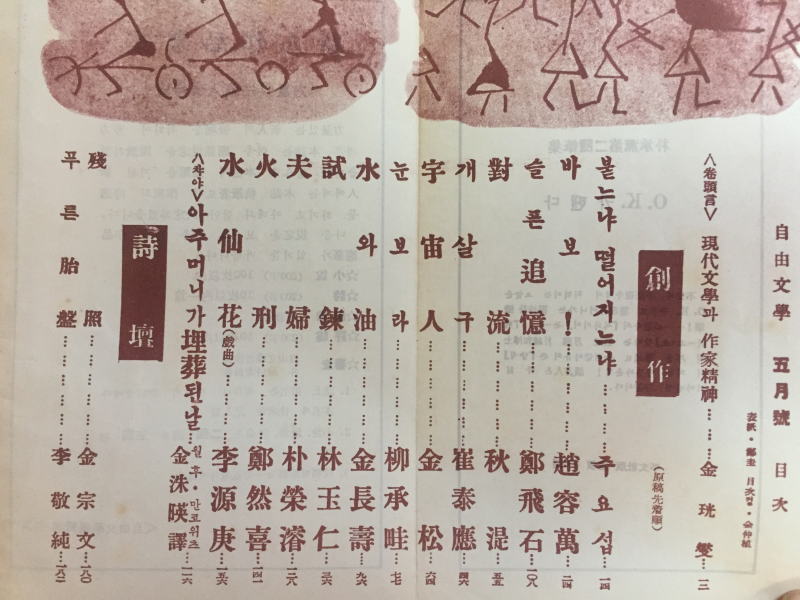 自由文學 五月號 目次
表紙・鄭圭 目次컽・金仲植
<卷頭言> 現代文學과 作家精神………金珖燮…三
創作
(原稿先着順)
붙느냐 떨어지느냐………주요섭…一四
바보!………趙容萬…二四
슬픈 追憶………鄭飛石…一〇八
對流………秋湜…五五
개살구………崔泰應…四六
宇宙人………金松…六四
눈보라………柳承畦…七七
水와油………金長壽…九六
試鍊………林玉仁…三六
夫婦………朴榮濬…一二八
火刑………鄭然喜…一四一
水仙花(戱曲)………李源庚…一五六
<챠야>아주머니가埋葬된날…월후・만로위츠 金洙暎譯…一一六
詩壇
殘照………金宗文…一八〇
푸른胎盤………李敬純…一八二